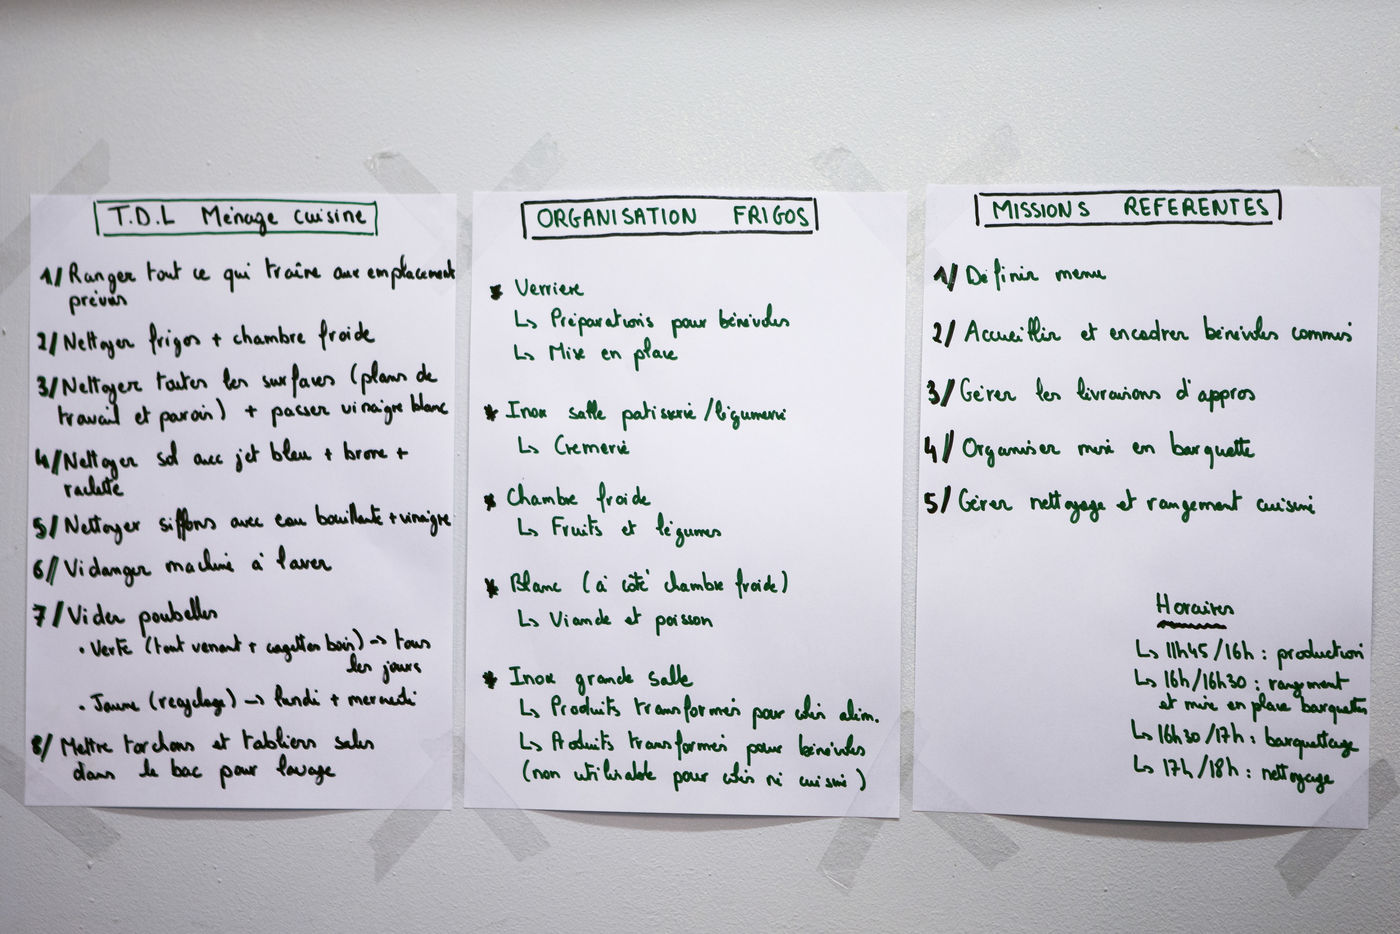 T.D.L Ménage cuisine
1/ Ranger tout ce qui traîne aux emplacement
prévus
2/ Nettoyer frigos + chambre froide
3/ Nettoyer toutes les surfaces (plans de
travail et parois) + passer vinaigre blanc
4/ Nettoyer sol avec jet bleu + brosse +
raclette
5/ Nettoyer siffons avec eau bouillante + vinaigre
6/ Vidanger machine à laver
7/ Vider poubelles
• Verte (tout venant + cagettes bois) -> tous
les jours
• Jaune (recyclage) -> lundi + mercredi
8/ Mettre torchons et tabliers sales
dans le bac pour lavage
ORGANISATION FRIGOS
* Verriere
↳ Préparations pour bénévoles
↳ Mise en place
* Inox salle patisserie/légumerie
↳ Cremerie
* Chambre froide
↳ Fruits et légumes
* Blanc (à côté chambre froide)
↳ Viande et poisson
* Inox grande salle
↳ Produits transformés pour colis alim.
↳ Produits transformés pour bénévoles
(non utilisable pour colis ni cuisine)
MISSIONS REFERENTES
1/ Définir menu
2/ Accueillir et encadrer bénévoles commis
3/ Gérer les livraisons d'appros
4/ Organiser mise en barquette
5/ Gérer nettoyage et rangement cuisine
Horaires
↳ 11h45/16h : production
↳ 16h/16h30 : rangement
et mise en place barquettes
↳ 16h30/17h : barquettage
↳ 17h/18h : nettoyage